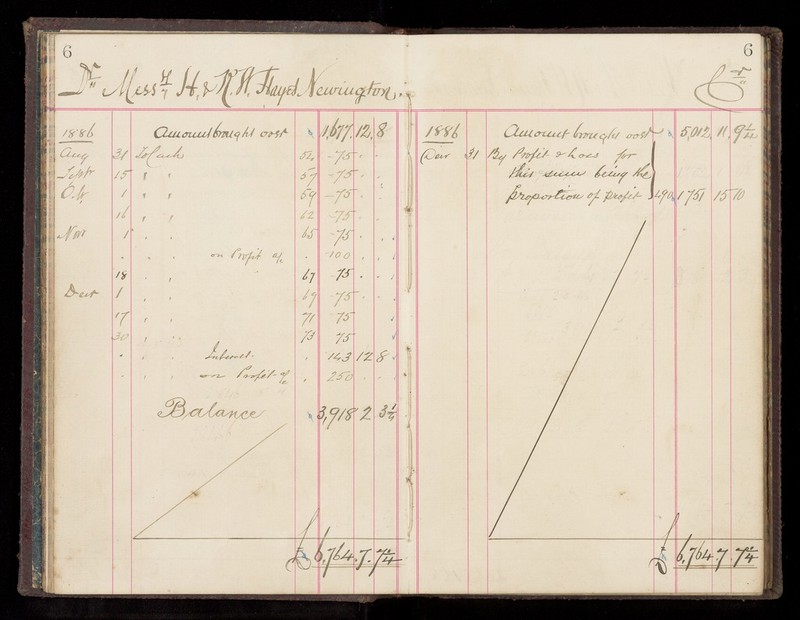 6
Dr Messrs H. & R. H. Hayes Newington.
1886 Amount brought over 1,677.12.8
Aug 31 To Cash 54 75 . .
Septr 15 " " 57 75 . .
Oct 1 " " 59 75 . .
16 " " 62 75 . .
Nov 1 " " 65 75 . .
" " on Profit a/c . 100 . .
18 " " 67 75 . .
Decr 1 " " 69 75 . .
17 " " 71 75
30 " " 73 75
Interest . 143 12 8
on Profit a/c . 250 . .
Balance 3,918 2 3¼
£ 6,764.7.7¼
6
Cr
1886 Amount brought over 5,012.11.9¼
Decr 31 By Profit & Loss for
this sum being the
proportion of profit 190 1751 15 10
£ 6,764.7.7¼